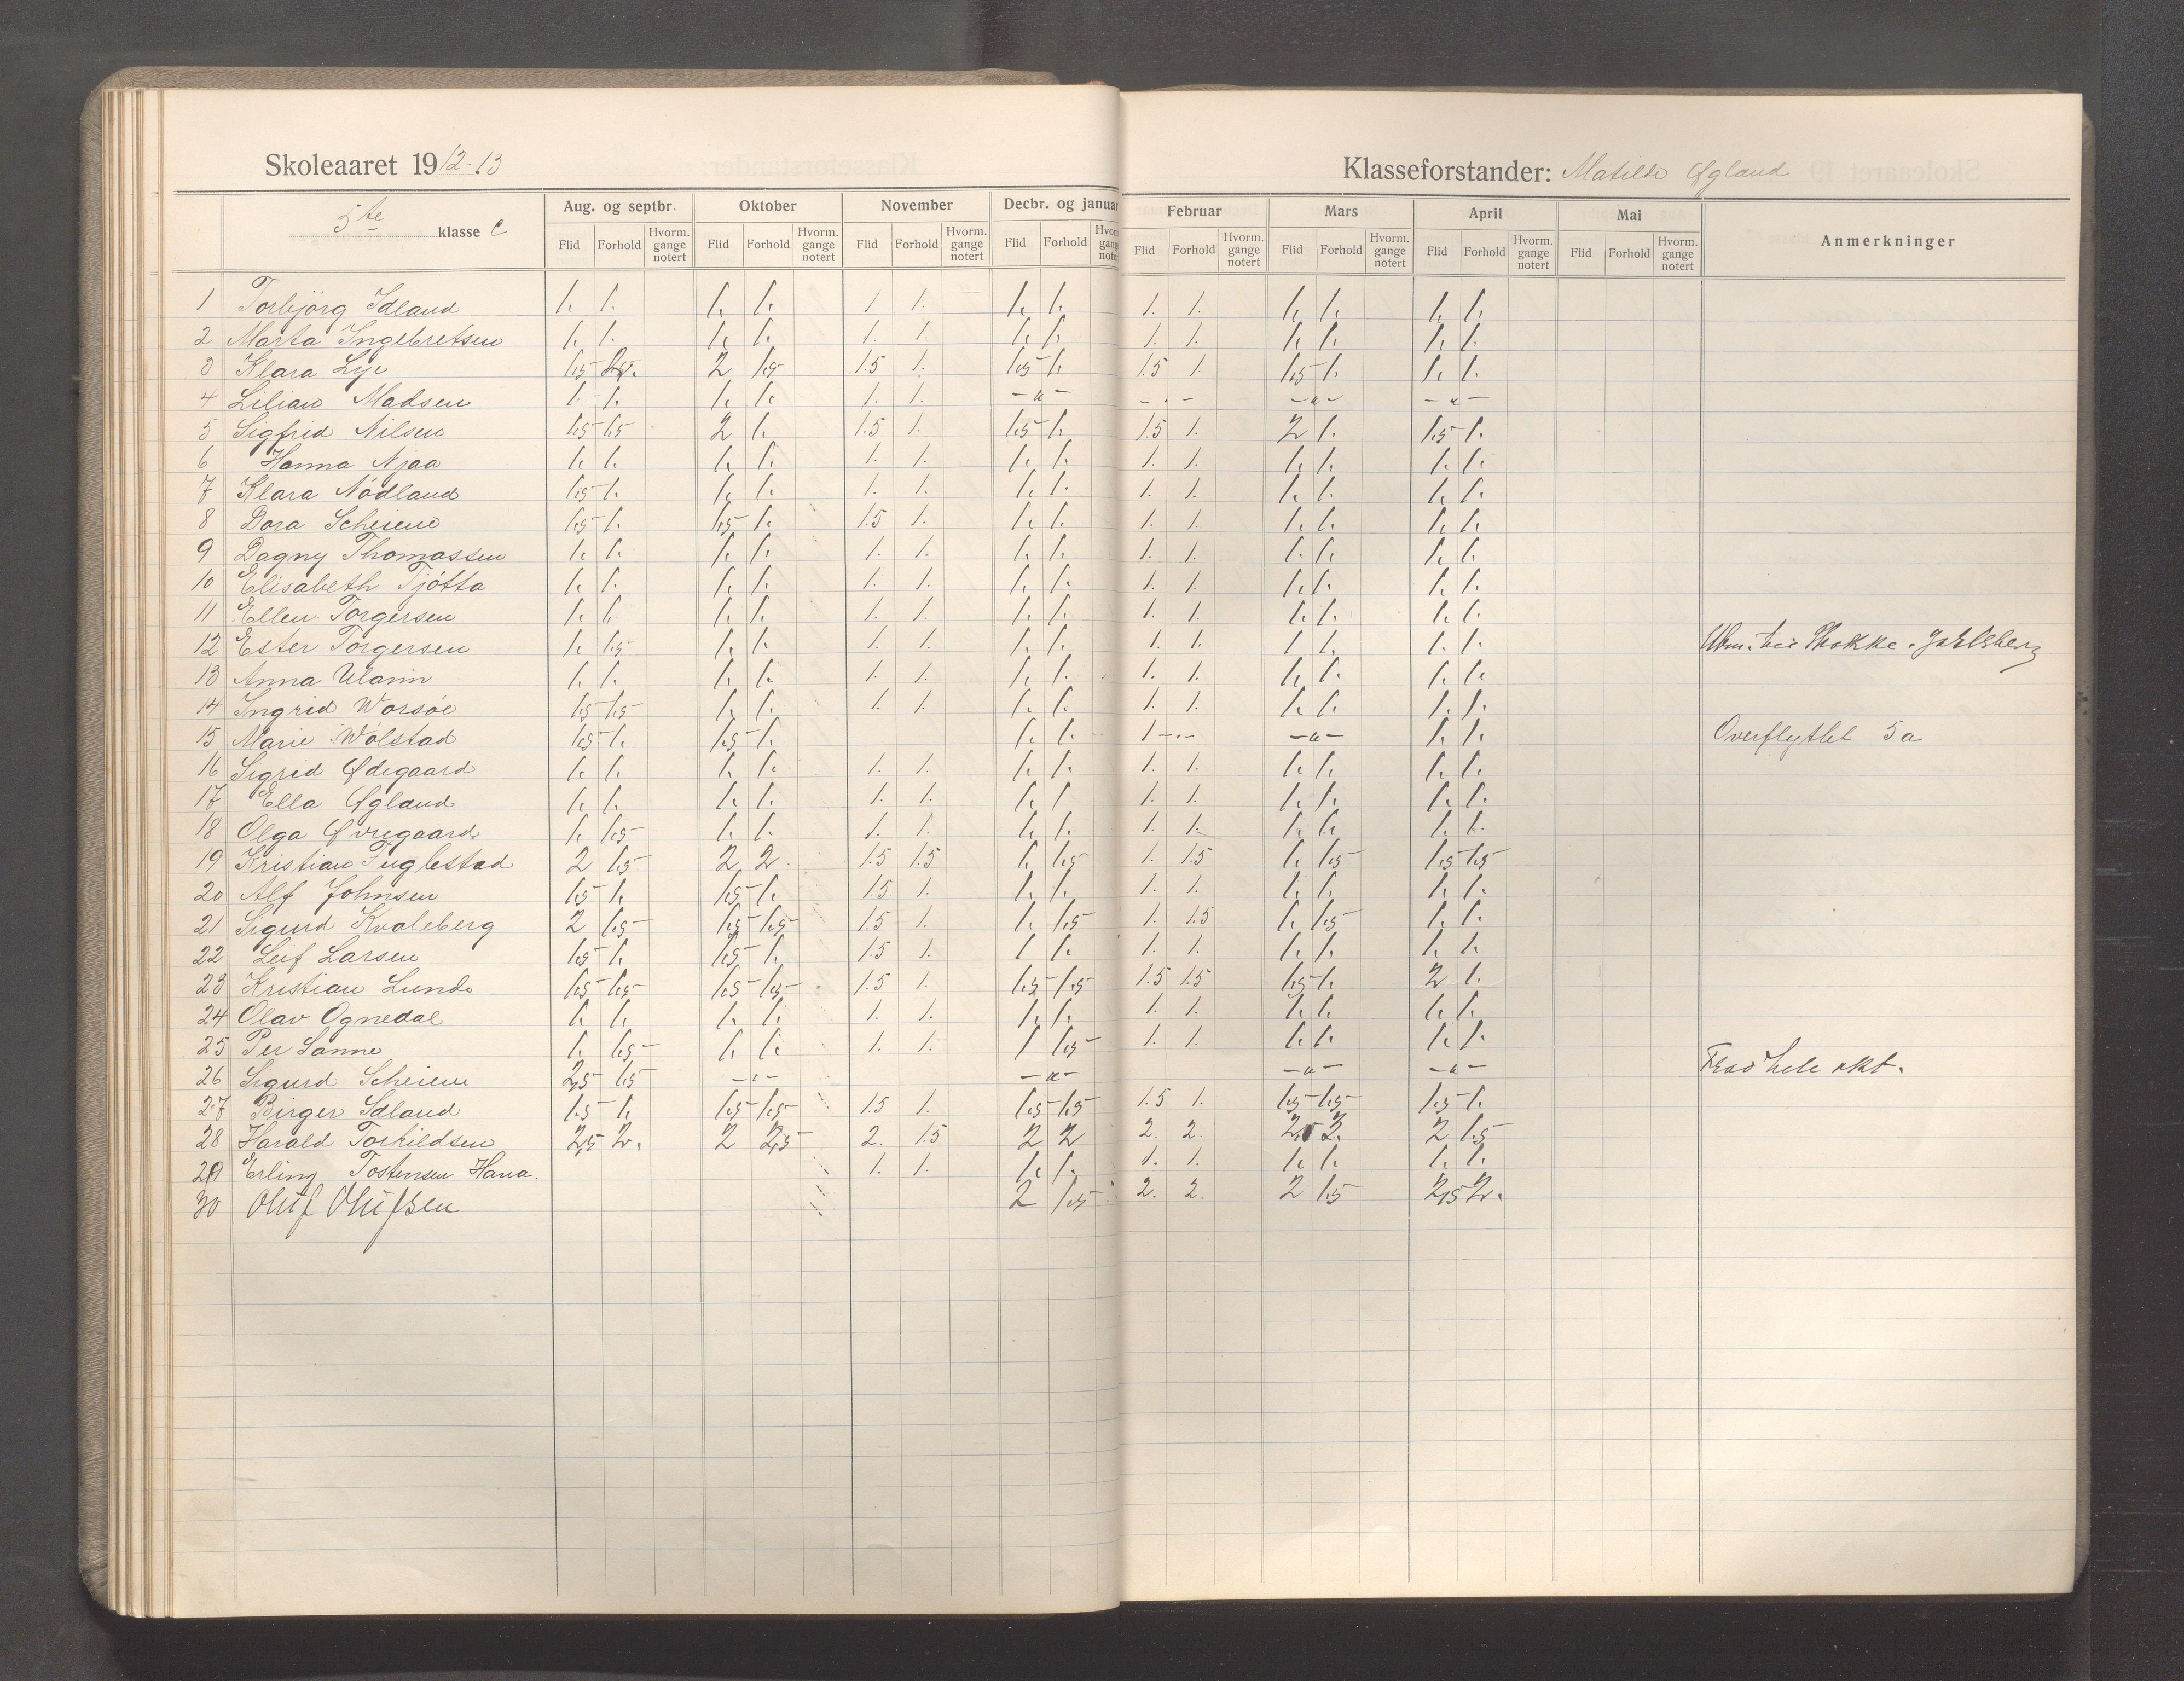 Skoleaaret 1912-13
Klasseforstander: Matilde Øgland
5te klasse c
Aug. og septbr. Oktober November Decbr. og januar Februar Mars April Mai Anmerkninger
Flid Forhold Hvorm. gange notert Flid Forhold Hvorm. gange notert Flid Forhold Hvorm. gange notert Flid Forhold Hvorm. gange notert Flid Forhold Hvorm. gange notert Flid Forhold Hvorm. gange notert Flid Forhold Hvorm. gange notert Flid Forhold Hvorm. gange notert
1 Torbjörg Idland 1. 1. 1. 1. 1 1. 1. 1. 1. 1. 1. 1. 1. 1.
2 Marta Ingebretsen 1. 1. 1. 1. 1. 1. 1. 1. 1. 1. 1. 1. 1. 1.
3 Klara Lye 1,5 2 1,5 1.5 1. 1,5 1. 1.5 1. 1,5 1. 1. 1.
4 Lilian Madsen 1. 1. 1. 1. 1. 1. -"- -"- -"- -"-
5 Sigfrid Nilsen 1,5 1,5 2 1. 1.5 1. 1,5 1. 1.5 1. 2 1. 1,5 1.
6 Hanna Njaa 1. 1. 1. 1. 1. 1. 1. 1. 1. 1. 1. 1. 1. 1.
7 Klara Nödland 1,5 1. 1. 1. 1. 1. 1. 1. 1. 1. 1. 1. 1. 1.
8 Dora Scheiene 1,5 1. 1,5 1. 1.5 1. 1. 1. 1. 1. 1. 1. 1. 1.
9 Dagny Thomassen 1. 1. 1. 1. 1. 1. 1. 1. 1. 1. 1. 1. 1. 1.
10 Elisabeth Tjötta 1. 1. 1. 1. 1. 1. 1. 1. 1. 1. 1. 1. 1. 1.
11 Ellen Torgersen 1. 1. 1. 1. 1. 1. 1. 1. 1. 1. 1. 1. 1. 1.
12 Ester Torgersen 1. 1,5 1. 1. 1. 1. 1. 1. 1. 1. 1 1. 1. 1.
13 Anna Ularin 1. 1. 1. 1. 1. 1. 1. 1. 1. 1. 1. 1. 1. 1.
14 Ingrid Worsöe 1,5 1,5 1. 1. 1. 1. 1. 1. 1. 1. 1. 1. 1. 1.
15 Marie Wölstad 1,5 1. 1,5 1. 1. 1. 1 -"- -"- 1. 1. Overflyttet 5a
16 Sigrid Ödegaard 1. 1. 1. 1. 1. 1. 1. 1. 1. 1. 1. 1. 1. 1.
17 Ella Øgland 1. 1. 1. 1. 1. 1. 1. 1 1. 1. 1. 1. 1. 1.
18 Olga Øvregaard 1. 1,5 1. 1. 1. 1. 1. 1. 1. 1. 1. 1. 1. 1.
19 Kristian Fuglestad 2 1,5 2 2. 1.5 1.5 1. 1,5 1. 1.5 1. 1,5 1,5 1,5
20 Alf Johnsen 1,5 1. 1,5 1. 1.5 1. 1. 1. 1. 1. 1. 1. 1. 1.
21 Sigurd Kvaleberg 2 1,5 1,5 1,5 1.5 1. 1. 1,5 1. 1.5 1. 1,5 1. 1.
22 Leif Larsen 1,5 1. 1,5 1. 1.5 1. 1 1. 1. 1. 1. 1. 1. 1.
23 Kristian Lunde 1,5 1,5 1,5 1,5 1.5 1. 1,5 1,5 1.5 1.5 1,5 1. 2 1.
24 Olav Ognedal 1. 1. 1. 1. 1. 1. 1. 1. 1. 1. 1. 1. 1. 1.
25 Per Sanne 1. 1,5 1. 1. 1. 1. 1 1,5 1. 1. 1. 1. 1. 1.
26 Sigurd Scheiene 2,5 1,5 -"- -"- -"- -"- hele okt.
27 Birger Idland 1,5 1. 1,5 1,5 1.5 1. 1,5 1,5 1.5 1. 1,5 1,5 1,5 1.
28 Harald Torkildsen 2,5 2. 2 2,5 2. 1.5 2 2 2. 2. 2,5 2. 2 1,5
29 Erling Tostensen Hana 1. 1. 1. 1. 1. 1. 1. 1. 1. 1.
30 Oluf Olufsen 2 1,5 2. 2. 2 1,5 2,5 2.